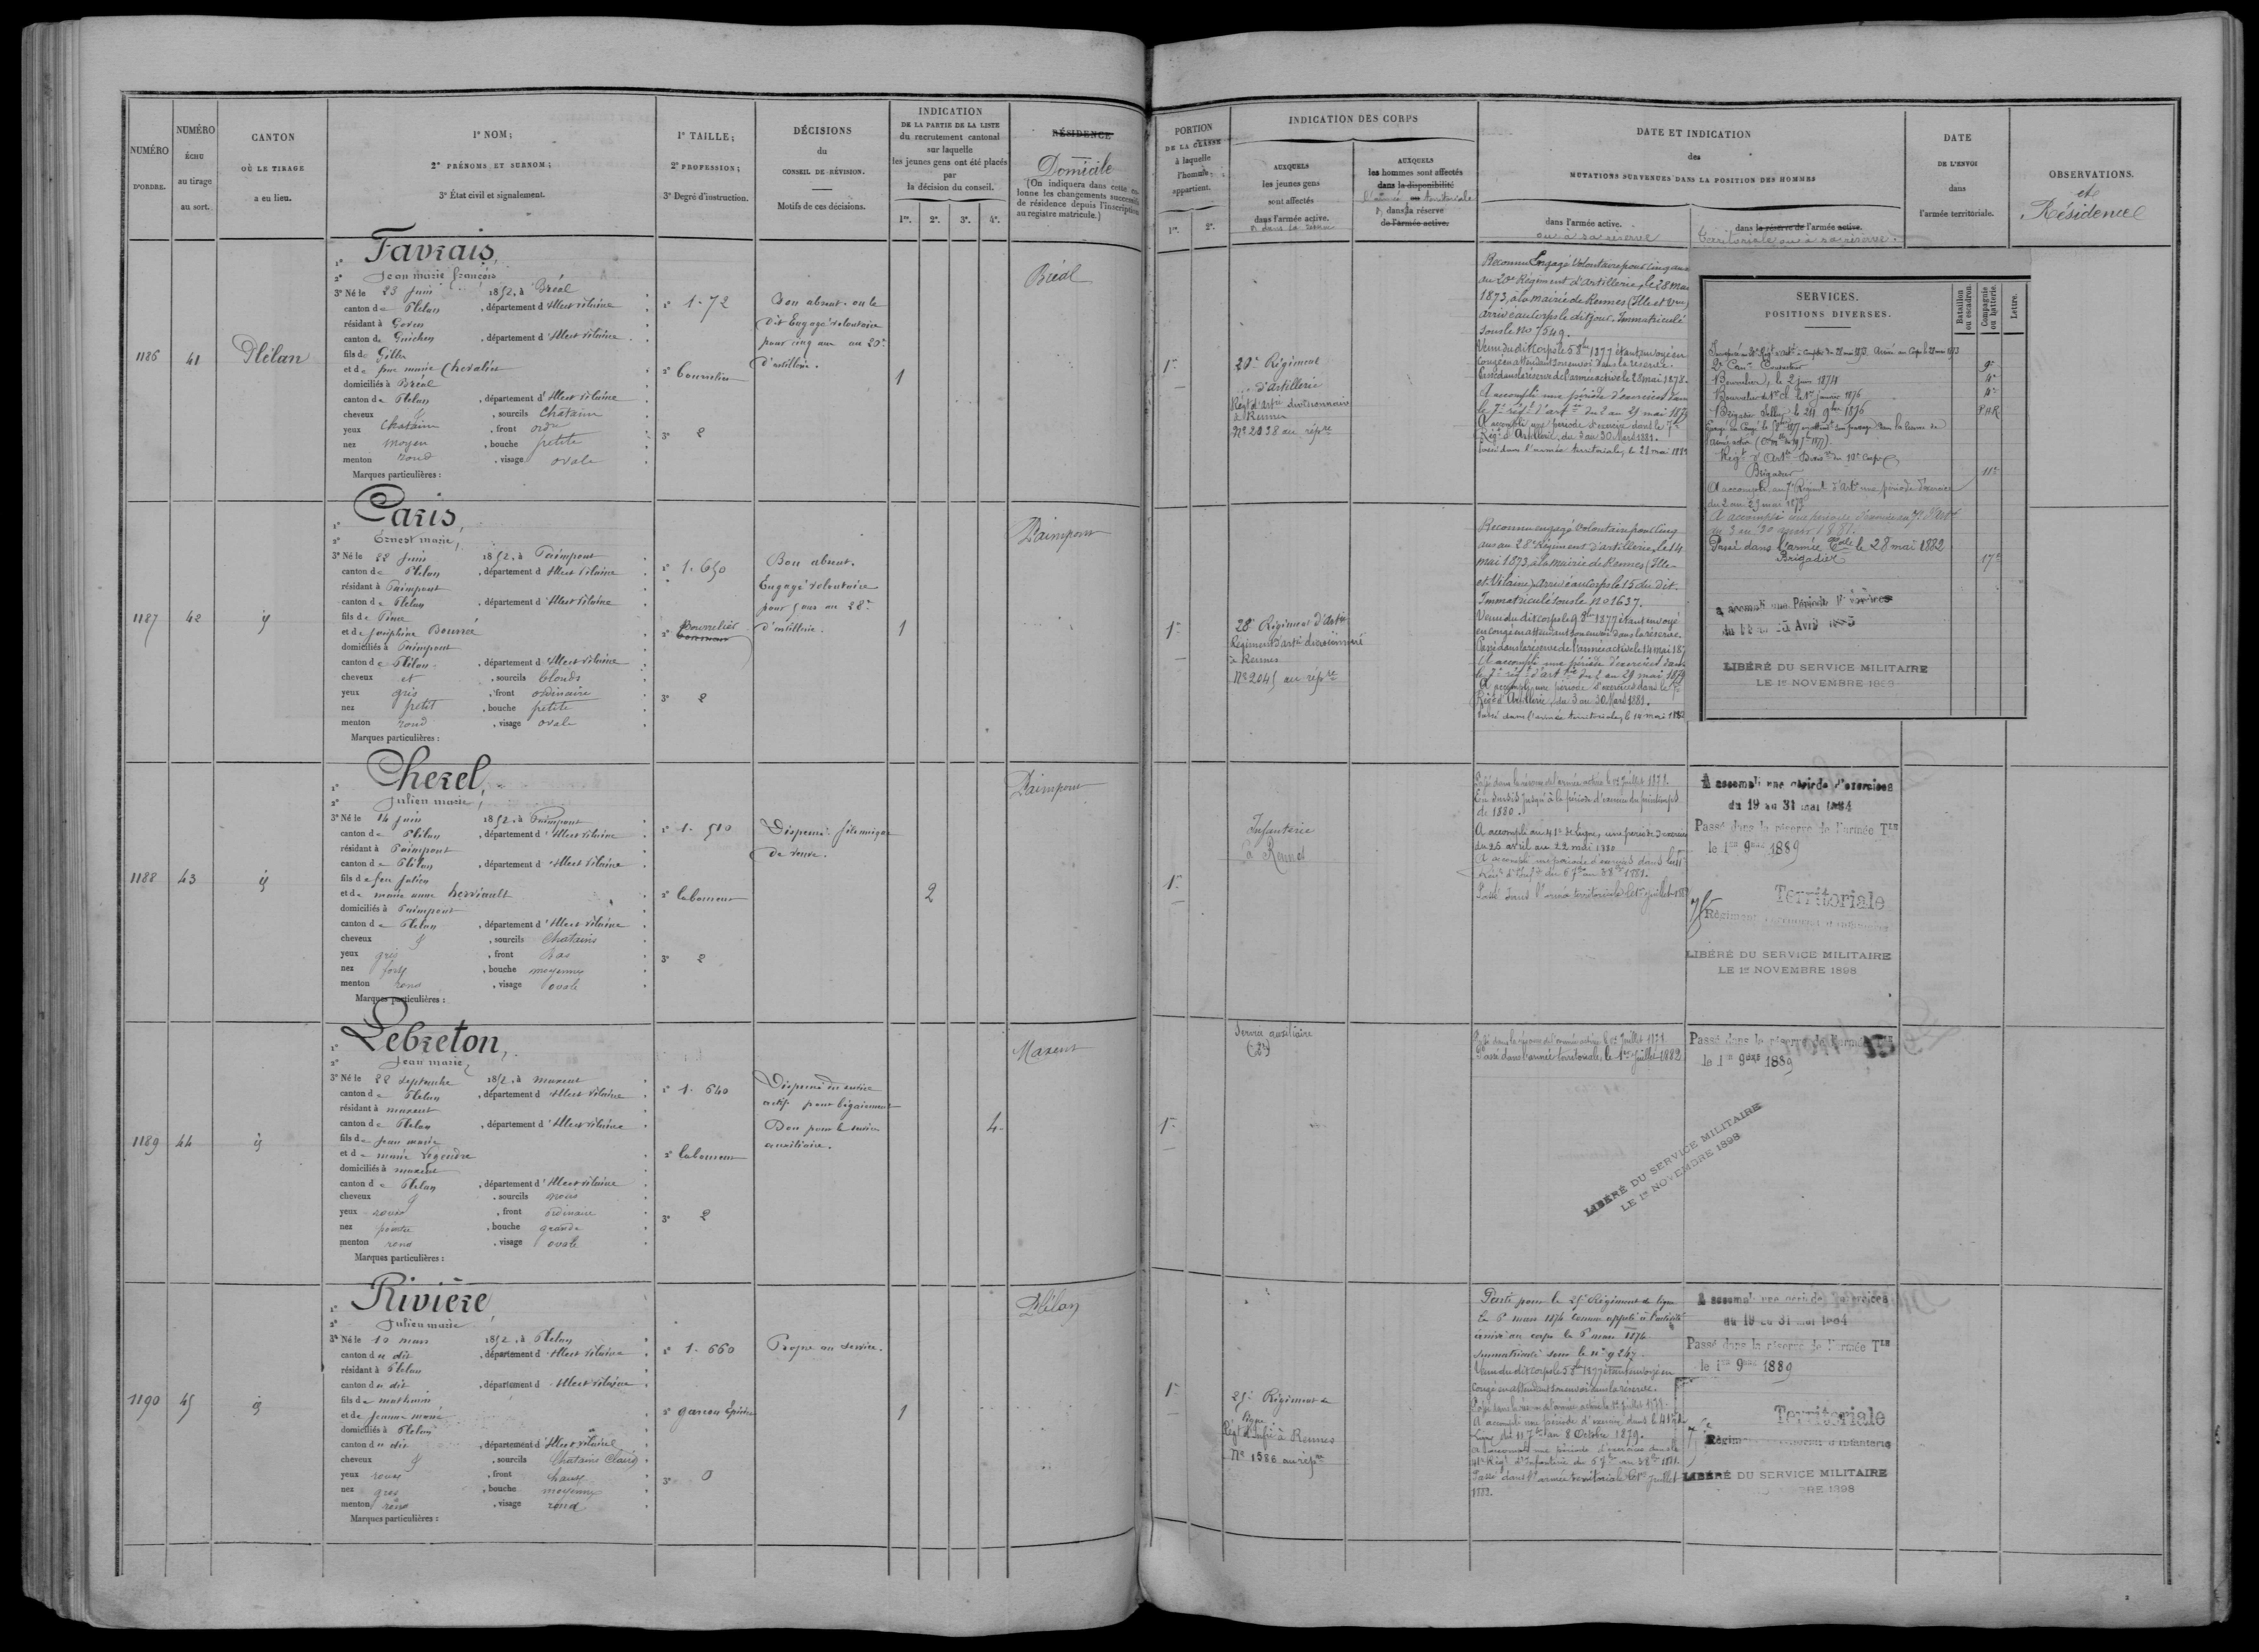 NUMÉRO
D'ORDRE.
NUMÉRO
ÉCHU
au tirage
au sort.
CANTON
OÙ LE TIRAGE
a eu lieu.
1° NOM;
2° PRÉNOMS ET SURNOM;
3° État civil et signalement.
1° TAILLE;
2° PROFESSION;
3° Degré d'instruction.
DÉCISIONS
du
CONSEIL DE RÉVISION.
Motifs de ces décisions.
INDICATION
DE LA PARTIE DE LA LISTE
du recrutement cantonal
sur laquelle
les jeunes gens ont été placés
par
la décision du conseil.
1re. 2e. 3e. 4e.
RÉSIDENCE
Domicile
(On indiquera dans cette colonne les changements successifs
de résidence depuis l'inscription
au registre matricule.)
PORTION
DE LA CLASSE
à laquelle
l'homme
appartient.
1re. 2e.
INDICATION DES CORPS
AUXQUELS
les jeunes gens
sont affectés
dans l'armée active.
AUXQUELS
les hommes sont affectés
dans la disponibilité
dans la réserve
de l'armée active.
DATE ET INDICATION
des
MUTATIONS SURVENUES DANS LA POSITION DES HOMMES
dans l'armée active.
ou à sa réserve
dans la réserve de l'armée active.
territoriale ou à sa réserve.
DATE
DE L'ENVOI
dans
l'armée territoriale.
OBSERVATIONS.
et
Résidence
1186
41
Plélan
Favrais,
Jean marie françois
3° Né le 23 Juin 1852, à Bréal
canton de Plélan, département d'Ille et Vilaine
résidant à Goven
canton de Guichen, département d'Ille et Vilaine
fils de Gilles
et de Chevalier
domiciliés à Bréal
canton de Plélan, département d'Ille et Vilaine
cheveux et, sourcils Chatain
yeux Chatain, front ordre
nez moyen, bouche petite
menton rond, visage ovale
Marques particulières :
1° 1.72
3° 2
Bon absent. on le
dit Engagé volontaire
pour cinq ans au 20e
d'artillerie.
1
Bréal
1re
20e Régiment
d'artillerie
Régt d'artie divisionnaire
à Rennes
N° 2038 au répre
Reconnu Engagé Volontaire pour cinq ans
au 20e Régiment d'artillerie, le 28 mai
1873, à la mairie de Rennes (Ille et Vne)
arrivé au Corps le dit jour. Immatriculé
sous le no 7549.
Venu du dit corps le 5 8bre 1877 étant envoyé en
congé en attendant son envoi dans la réserve.
Passé dans la réserve de l'armée active le 28 mai 1878.
A accompli une période d'exercices dans
le 7e régt d'artie du 2 au 29 mai 1879
A accompli une période d'exercice dans le 7e
Régt d'Artillerie, du 3 au 30 Mars 1881.
Passé dans l'armée territoriale, le 28 mai 1882
SERVICES.
POSITIONS DIVERSES.
Bataillon
ou escadron.
Compagnie
ou batterie.
Lettre.
2e Canr Conducteur
Bourrelier, le 2 juin 1874
Régt d'Artie
Brigadier
11e
A accompli au 7e Régiment d'Artie une période d'exercice
du 2 au 29 mai 1879
A accompli une période d'exercice au 7e d'Artie
du 3 au 30 mars 1881.
Passé dans l'armée Tale le 28 mai 1882
Brigadier
17e
LIBÉRÉ DU SERVICE MILITAIRE
LE 1er NOVEMBRE
1187
42
id
Paris,
Ernest marie,
3° Né le 22 Juin 1852, à Paimpont
canton de Plélan, département d'Ille et Vilaine
résidant à Paimpont
canton de Plélan, département d'Ille et Vilaine
fils de Pierre
et de Joséphine Bourré
domiciliés à Paimpont
canton de Plélan, département d'Ille et Vilaine
cheveux et, sourcils blonds
yeux gris, front ordinaire
nez petit, bouche petite
menton rond, visage ovale
Marques particulières :
1° 1.650
2° Bourrelier
3° 2
Bon absent.
Engagé volontaire
pour 5 ans au 28e
d'artillerie.
1
Paimpont
1re
28e Régiment d'Artie
Régiment d'artie divisionnaire
à Rennes
N° 2045 au répre
Reconnu engagé Volontaire pour cinq
ans au 28e Régiment d'artillerie, le 14
mai 1873, à la mairie de Rennes (Ille-
et-Vilaine). Arrivé au Corps le 15 du dit.
Immatriculé sous le no 1637.
Venu du dit corps le 9 8bre 1877 étant envoyé
en congé en attendant son envoi dans la réserve.
Passé dans la réserve de l'armée active le 14 mai 187
A accompli une période d'exercices dans
le 7e régt d'artie du 2 au 29 mai 1879
A accompli une période d'exercices dans le 7e
Régt d'Artillerie, du 3 au 30 Mars 1881.
Passé dans l'armée territoriale, le 14 mai 1882
1188
43
id
Cherel,
Julien marie,
3° Né le 14 juin 1852, à Paimpont
canton de Plélan, département d'Ille et Vilaine
résidant à Paimpont
canton de Plélan, département d'Ille et Vilaine
fils de feu Julien
et de marie anne
domiciliés à Paimpont
canton de Plélan, département d'Ille et Vilaine
cheveux et, sourcils Chatains
yeux gris, front bas
nez fort, bouche moyenne
menton rond, visage ovale
Marques particulières :
1° 1.510
2° laboureur
3° 2
Dispensé. fils unique
de veuve.
2
Paimpont
1re
Infanterie
à Rennes
Passé dans la réserve de l'armée active le 1er Juillet 1878.
En sursis jusqu'à la période d'exercice du printemps
de 1880.
A accompli au 41e de ligne, une période d'exercices
du 25 avril au 22 mai 1880
Passé dans l'armée territoriale le 1er juillet 1882
A accompli une période d'exercices
du 19 au 31 mai 1884
Passé dans la réserve de l'armée Tle
le 1er 9bre 1889
Territoriale
Régiment
LIBÉRÉ DU SERVICE MILITAIRE
LE 1er NOVEMBRE 1898
1189
44
id
Lebreton,
Jean marie,
3° Né le 22 septembre 1852, à maxent
canton de Plélan, département d'Ille et Vilaine
résidant à maxent
canton de Plélan, département d'Ille et Vilaine
fils de Jean marie
et de marie Legendre
domiciliés à maxent
canton de Plélan, département d'Ille et Vilaine
cheveux et, sourcils noirs
yeux roux, front ordinaire
nez pointu, bouche grande
menton rond, visage ovale
Marques particulières :
1° 1.640
2° laboureur
3° 2
Dispensé du service
actif pour bégaiement
Bon pour le service
auxiliaire.
4
Maxent
1re
Service auxiliaire
Passé dans la réserve de l'armée active le 1er Juillet 1878
Passé dans l'armée territoriale, le 1er Juillet 1882
Passé dans la réserve de l'armée
le 1er 9bre 1889
LIBÉRÉ DU SERVICE MILITAIRE
LE 1er NOVEMBRE 1898
1190
45
id
Rivière
Julien marie
3° Né le 10 mars 1852, à Plélan
canton du dit, département d'Ille et Vilaine
résidant à Plélan
canton du dit, département d'Ille et Vilaine
fils de mathurin
et de Jeanne marie
domiciliés à Plélan
canton du dit, département d'Ille et Vilaine
cheveux et, sourcils Chatains Clairs
yeux roux, front haut
nez gros, bouche moyenne
menton rond, visage rond
Marques particulières :
1° 1.660
2° garçon Epicier
3° 0
Propre au service.
1
Plélan
1re
25e Régiment de
ligne
Régt d'Infie à Rennes
N° 1586 au répre
Parti pour le 25e Régiment de ligne
le 6 mars 1874 comme appelé à l'activité
arrivé au corps le 6 mars 1874
immatriculé sous le n° 9247.
Venu du dit corps le 5 8bre 1877 étant envoyé en
congé en attendant son envoi dans la réserve.
Passé dans la réserve de l'armée active le 1er Juillet 1878.
A accompli une période d'exercices dans le 41e de
ligne du 11 7bre au 8 Octobre 1879.
A accompli une période d'exercices dans le
41e Régt d'Infanterie
Passé dans l'armée territoriale le 1er Juillet
1882.
A accompli une période d'exercices
du 19 au 31 mai 1884
Passé dans la réserve de l'armée Tle
le 1er 9bre 1889
Territoriale
d'Infanterie
LIBÉRÉ DU SERVICE MILITAIRE
1898